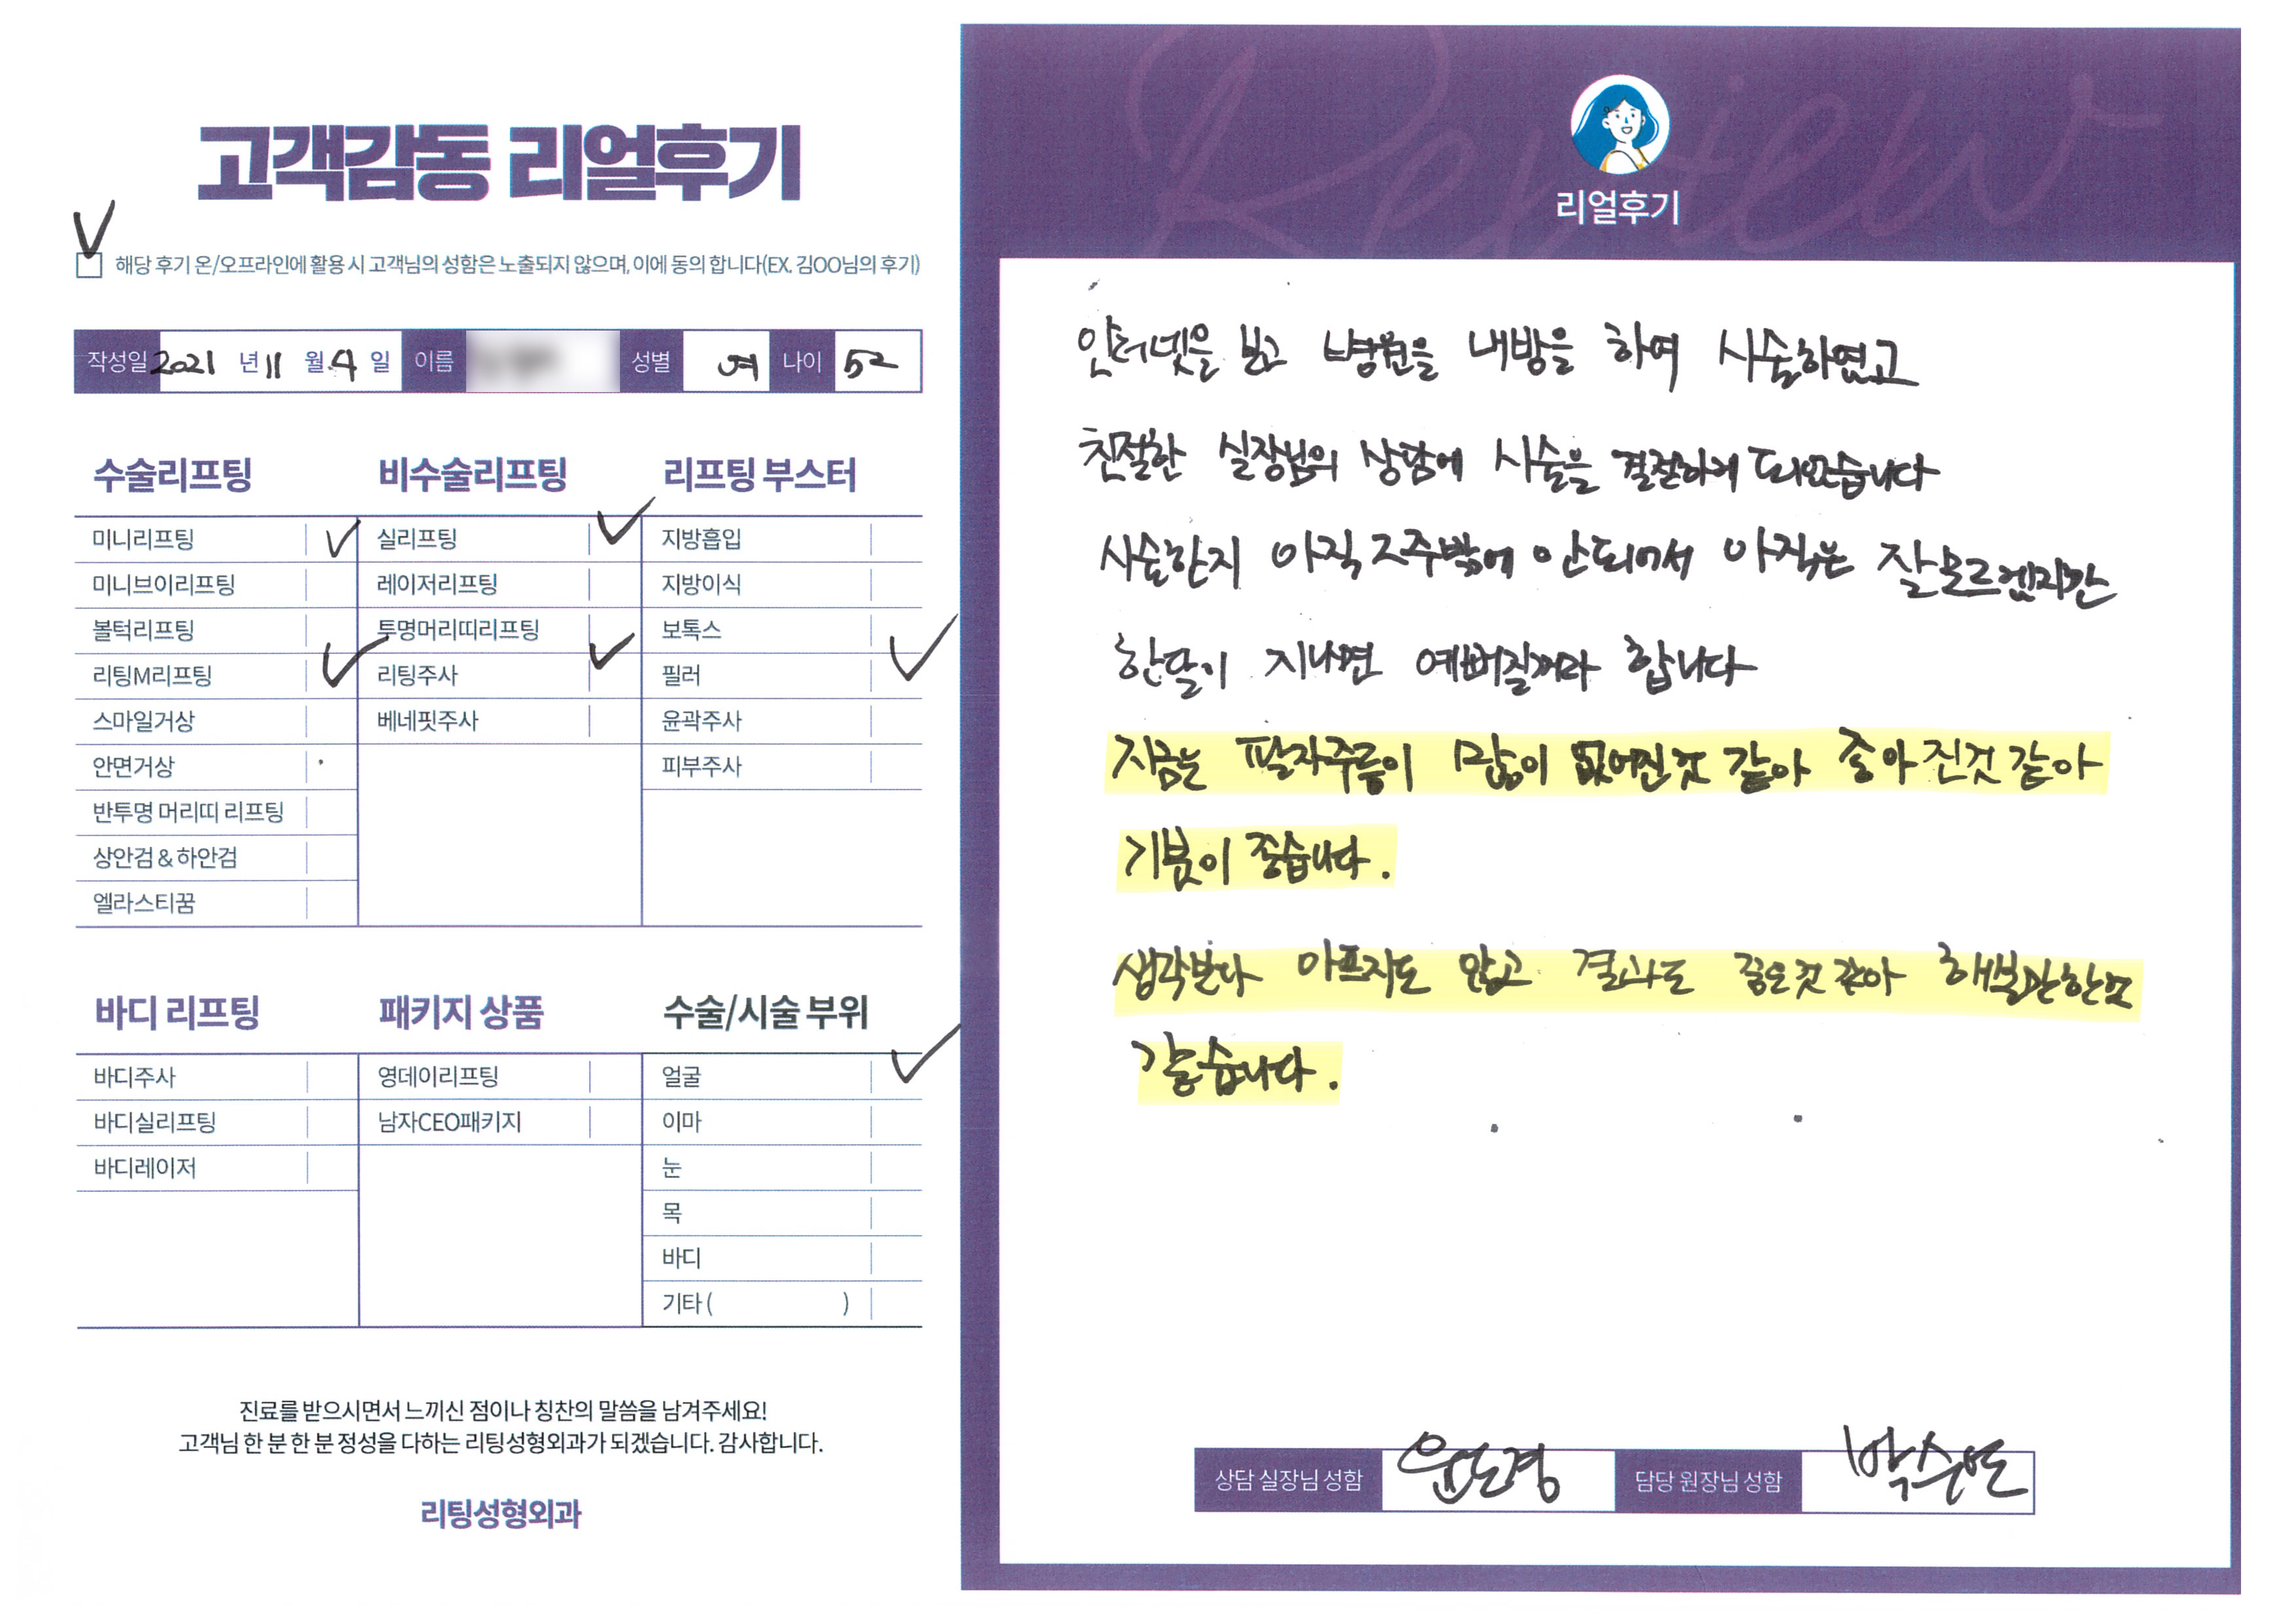 고객감동 리얼후기
해당 후기 온/오프라인에 활용 시 고객님의 성함은 노출되지 않으며, 이에 동의 합니다(EX. 김OO님의 후기)
작성일 2021 년 11 월 4 일 이름 성별 여 나이 52
수술리프팅
미니리프팅
미니브이리프팅
볼턱리프팅
리팅M리프팅
스마일거상
안면거상
반투명 머리띠 리프팅
상안검 & 하안검
엘라스티꿈
비수술리프팅
실리프팅
레이저리프팅
투명머리띠리프팅
리팅주사
베네핏주사
리프팅 부스터
지방흡입
지방이식
보톡스
필러
윤곽주사
피부주사
바디 리프팅
바디주사
바디실리프팅
바디레이저
패키지 상품
영데이리프팅
남자CEO패키지
수술/시술 부위
얼굴
이마
눈
목
바디
기타 ( )
진료를 받으시면서 느끼신 점이나 칭찬의 말씀을 남겨주세요!
고객님 한 분 한 분 정성을 다하는 리팅성형외과가 되겠습니다. 감사합니다.
리팅성형외과
Review
리얼후기
인터넷을 보고 병원을 내방을 하여 시술하였고
친절한 실장님의 상담에 시술을 결정하게 되었습니다
시술한지 아직 2주밖에 안되어서 아직은 잘모르겠지만
한달이 지나면 예뻐질꺼라 합니다
지금는 팔자주름이 많이 없어진것 같아 좋아진것 같아
기분이 좋습니다.
생각보다 아프지도 않고 결과도 좋은것 같아 해볼만한것
같습니다.
상담 실장님 성함 윤도경 담당 원장님 성함